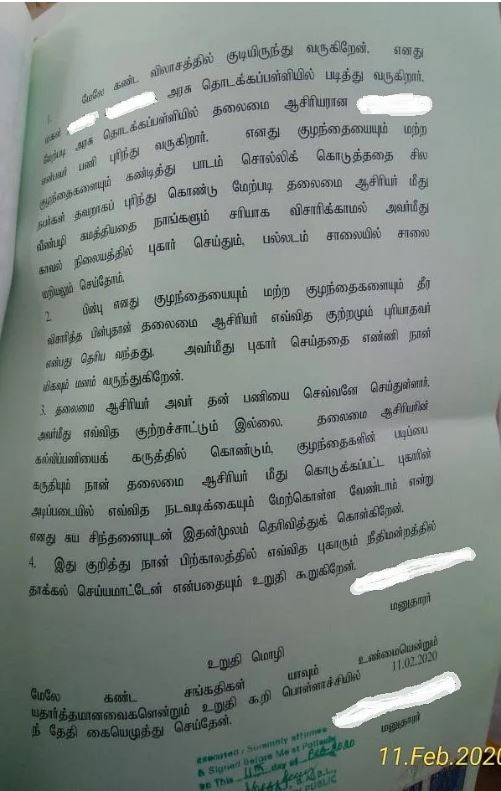 1. மேலே கண்ட விலாசத்தில் குடியிருந்து வருகிறேன். எனது
மகள் அரசு தொடக்கப்பள்ளியில் படித்து வருகிறார்.
மேற்படி அரசு தொடக்கப்பள்ளியில் தலைமை ஆசிரியரான
என்பவர் பணி புரிந்து வருகிறார். எனது குழந்தையையும் மற்ற
குழந்தைகளையும் கண்டித்து பாடம் சொல்லிக் கொடுத்ததை சில
நபர்கள் தவறாகப் புரிந்து கொண்டு மேற்படி தலைமை ஆசிரியர் மீது
வீண்பழி சுமத்தியதை நாங்களும் சரியாக விசாரிக்காமல் அவர்மீது
காவல் நிலையத்தில் புகார் செய்தும், பல்லடம் சாலையில் சாலை
மறியலும் செய்தோம்.
2. பின்பு எனது குழந்தையையும் மற்ற குழந்தைகளையும் தீர
விசாரித்த பின்புதான் தலைமை ஆசிரியர் எவ்வித குற்றமும் புரியாதவர்
என்பது தெரிய வந்தது. அவர்மீது புகார் செய்ததை எண்ணி நான்
மிகவும் மனம் வருந்துகிறேன்.
3. தலைமை ஆசிரியர் அவர் தன் பணியை செவ்வனே செய்துள்ளார்.
அவர்மீது எவ்வித குற்றச்சாட்டும் இல்லை. தலைமை ஆசிரியரின்
கல்விப்பணியைக் கருத்தில் கொண்டும், குழந்தைகளின் படிப்பை
கருதியும் நான் தலைமை ஆசிரியர் மீது கொடுக்கப்பட்ட புகாரின்
அடிப்படையில் எவ்வித நடவடிக்கையும் மேற்கொள்ள வேண்டாம் என்று
எனது சுய சிந்தனையுடன் இதன்மூலம் தெரிவித்துக் கொள்கிறேன்.
4. இது குறித்து நான் பிற்காலத்தில் எவ்வித புகாரும் நீதிமன்றத்தில்
தாக்கல் செய்யமாட்டேன் என்பதையும் உறுதி கூறுகிறேன்.
மனுதாரர்
உறுதி மொழி
மேலே கண்ட சங்கதிகள் யாவும் உண்மையென்றும்
யதார்த்தமானவைகளென்றும் உறுதி கூறி பொள்ளாச்சியில் 11.02.2020
ந் தேதி கையெழுத்து செய்தேன்.
மனுதாரர்
Executed / Solemnly affirmed
& Signed Before Me at Pollachi
on This 11th day of Feb 2020
PUBLIC
11.Feb.2020